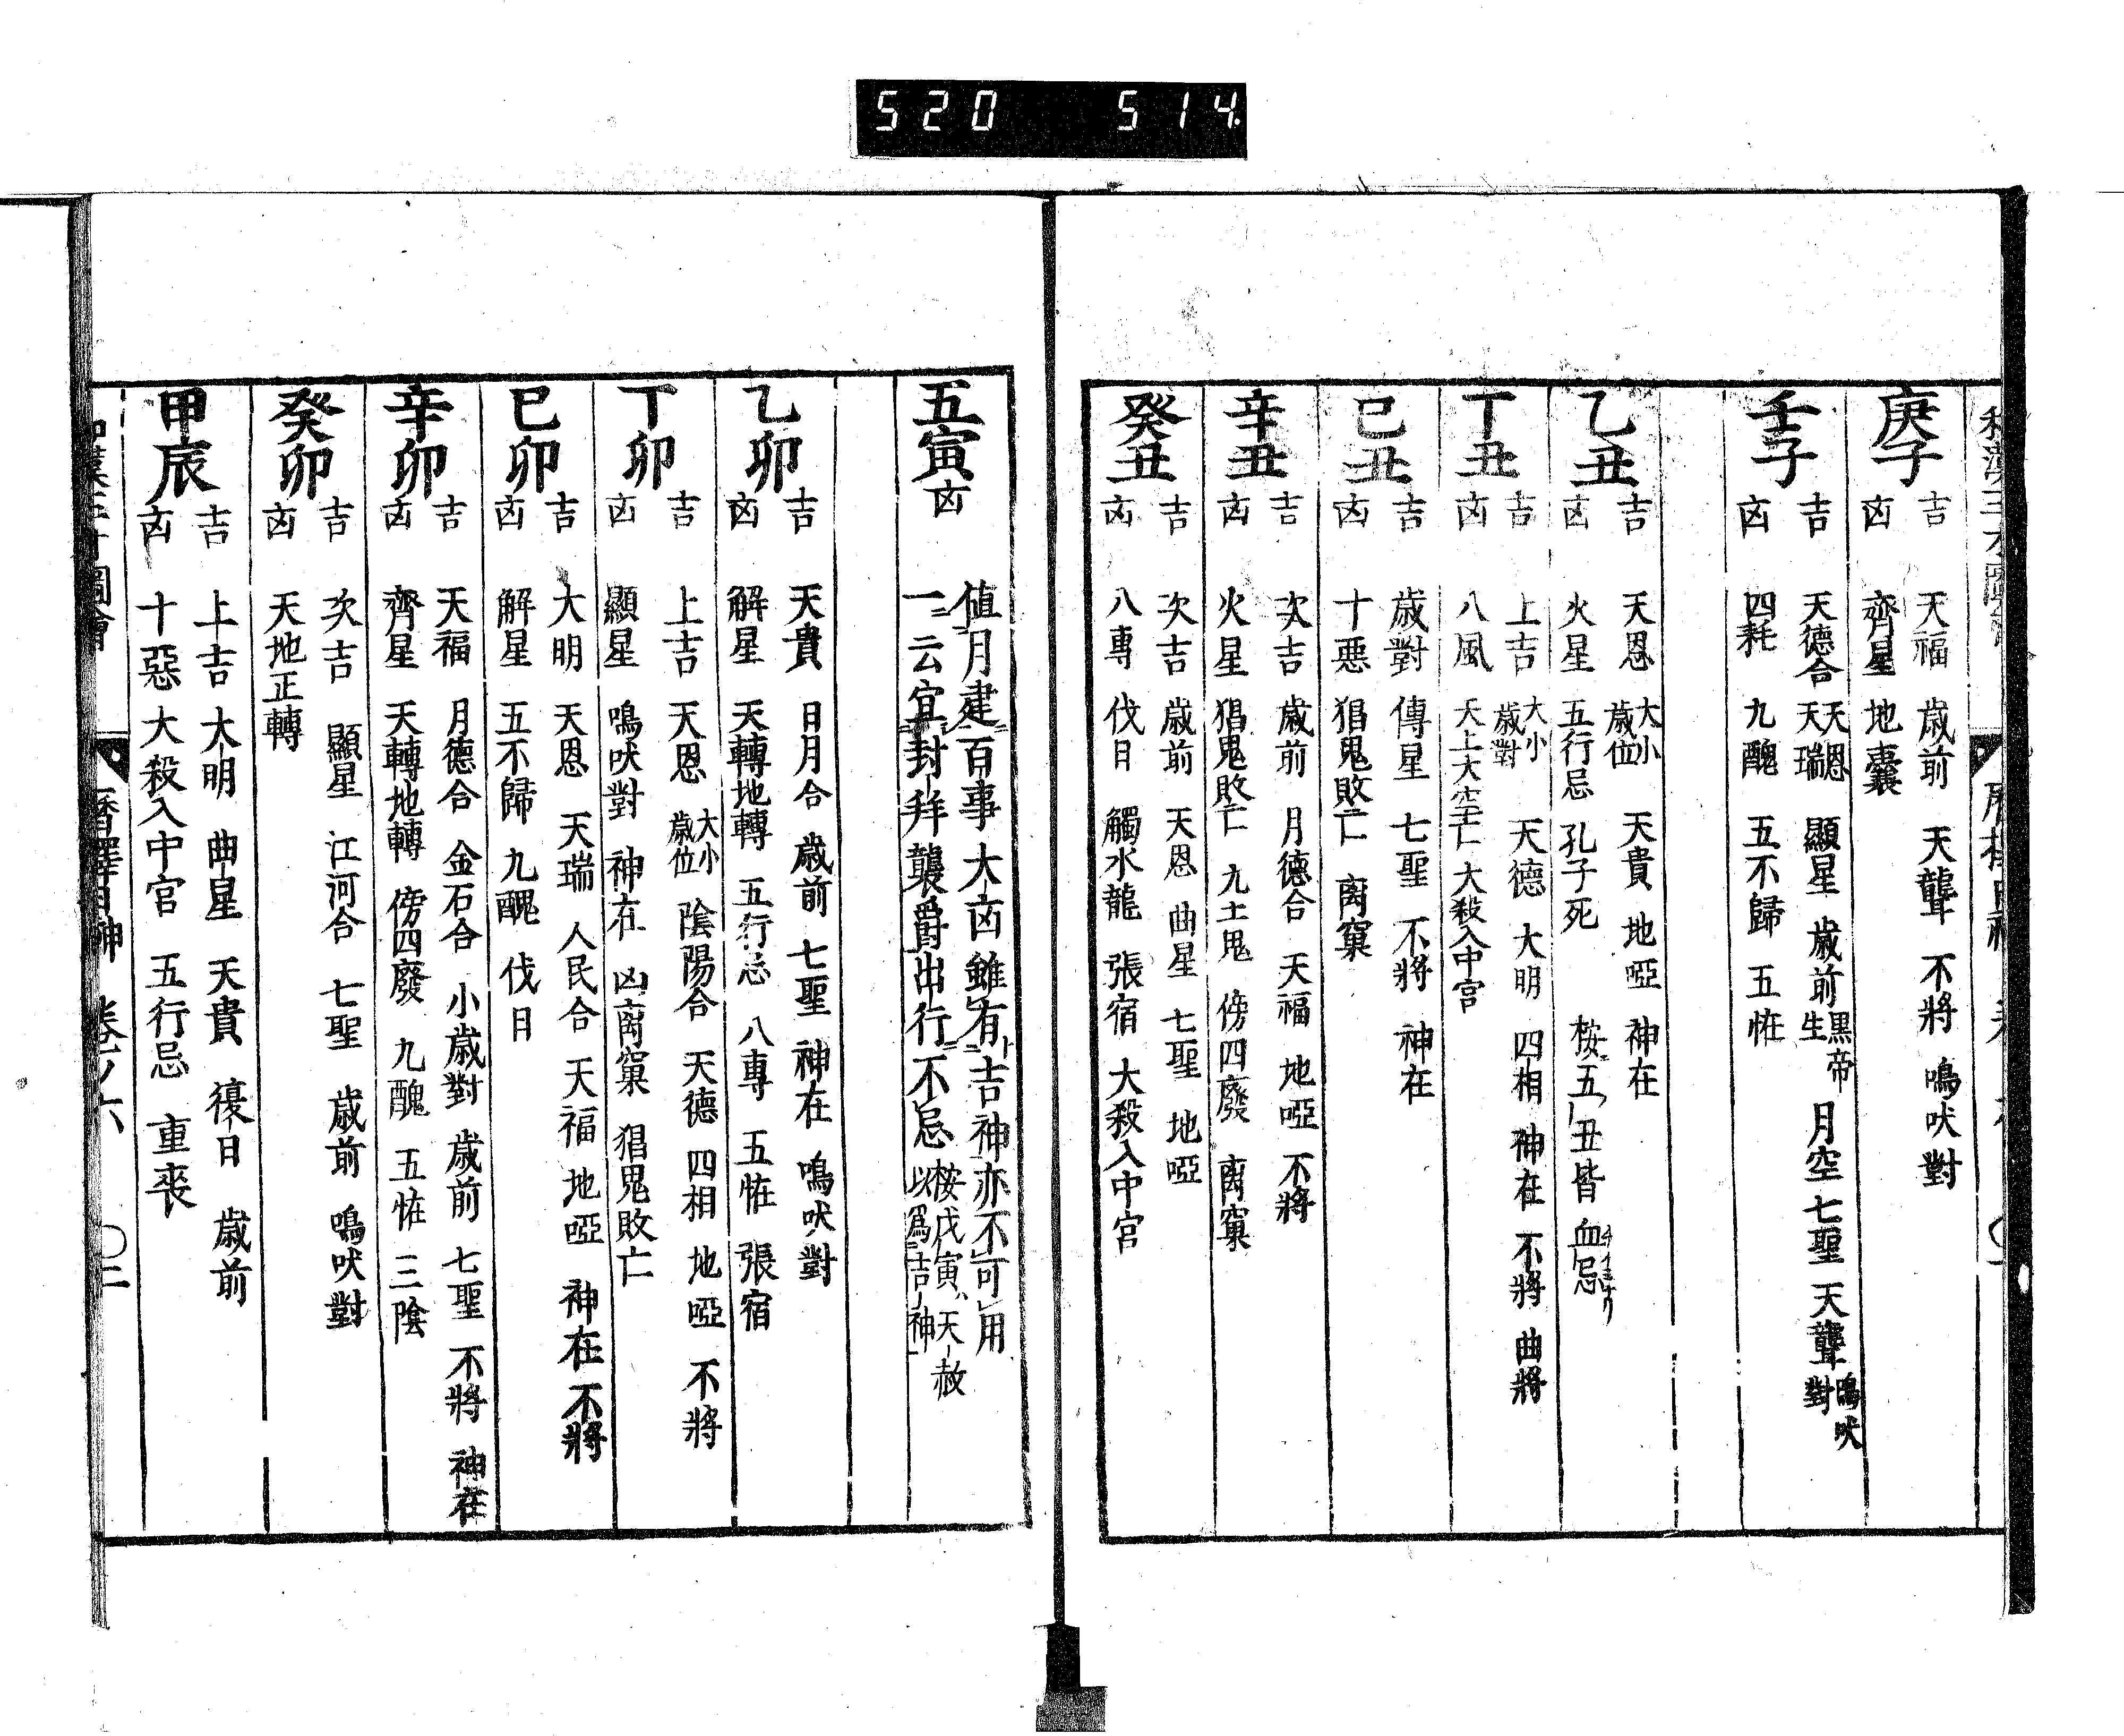 520 514
庚子
吉 天福 歳前 天聾 不將 鳴吠對
凶 齊星 地囊
壬子
吉 天德合 天恩 天瑞 顯星 歳前 黒帝生 月空 七聖 天聾 鳴吠對
凶 四耗 九醜 五不歸 五恠
乙丑
吉 天恩 大小歳位 天貴 地啞 神在
凶 火星 五行忌 孔子死 桉五丑皆血忌
丁丑
吉 上吉 大小歳對 天德 大明 四相 神在 不將 曲將
凶 八風 天上大空亡 大殺入中宮
己丑
吉 歳對 傳星 七聖 不將 神在
凶 十悪 猖鬼敗亡 离窠
辛丑
吉 次吉 歳前 月德合 天福 地啞 不將
凶 火星 猖鬼敗亡 九土鬼 傍四廢 离窠
癸丑
吉 次吉 歳前 天恩 曲星 七聖 地啞
凶 八專 伐日 觸水龍 張宿 大殺入中宮
五寅凶
値月建百事大凶雖有吉神亦不可用
一云宜封拜襲爵出行不忌 桉戊寅天赦以爲吉神
乙卯
吉 天貴 日月合 歳前 七聖 神在 鳴吠對
凶 解星 天轉地轉 五行忌 八專 五恠 張宿
丁卯
吉 上吉 天恩 大小歳位 陰陽合 天德 四相 地啞 不將
凶 顯星 鳴吠對 神在 凶离窠 猖鬼敗亡
己卯
吉 大明 天恩 天瑞 人民合 天福 地啞 神在 不將
凶 解星 五不歸 九醜 伐日
辛卯
吉 天福 月德合 金石合 小歳對 歳前 七聖 不將 神在
凶 齊星 天轉地轉 傍四廢 九醜 五恠 三陰
癸卯
吉 次吉 顯星 江河合 七聖 歳前 鳴吠對
凶 天地正轉
甲辰
吉 上吉 大明 曲星 天貴 復日 歳前
凶 十惡 大殺入中宮 五行忌 重喪